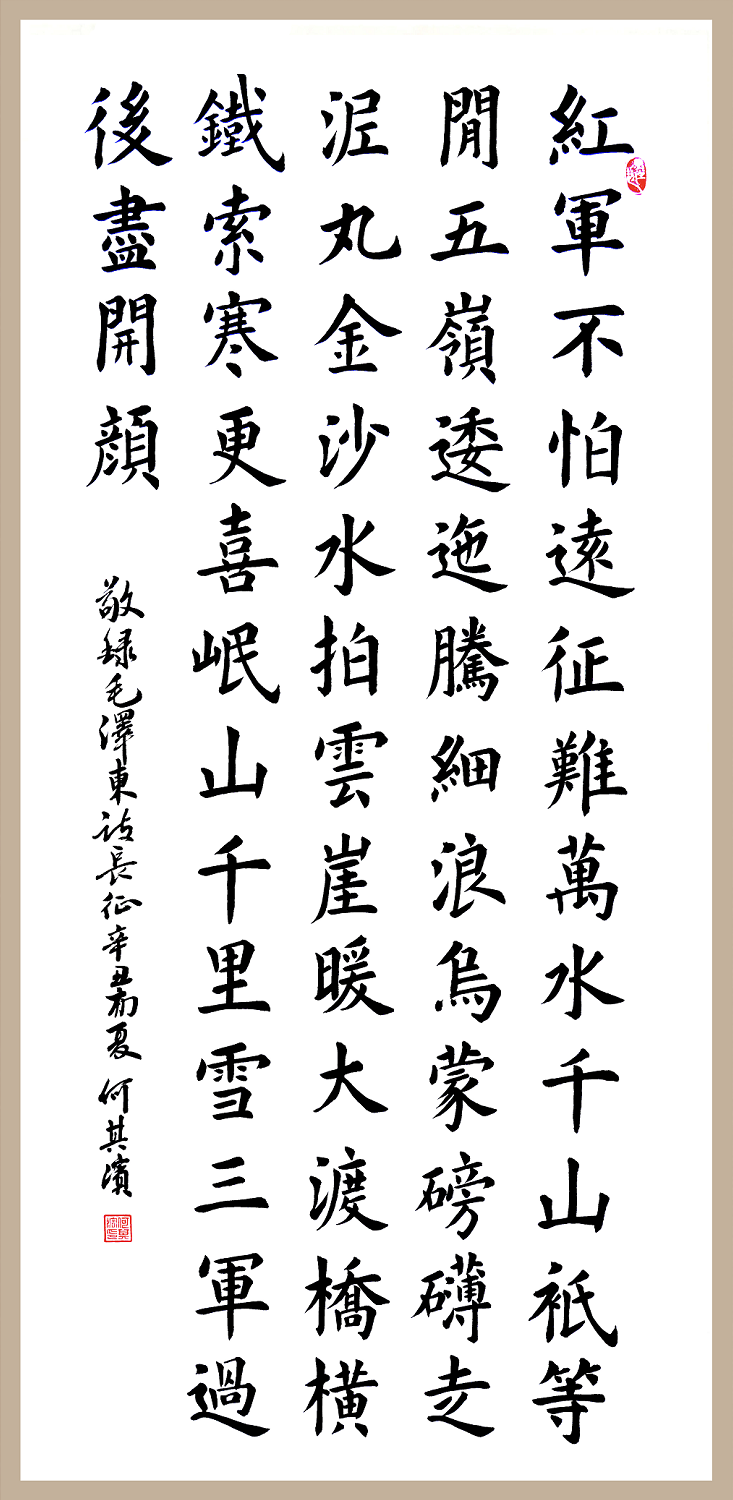 紅軍不怕遠征難萬水千山祇等
閒五嶺逶迤騰細浪烏蒙磅礴走
泥丸金沙水拍雲崖暖大渡橋橫
鐵索寒更喜岷山千里雪三軍過
後盡開顏
敬録毛澤東詩長征辛丑初夏何其濱